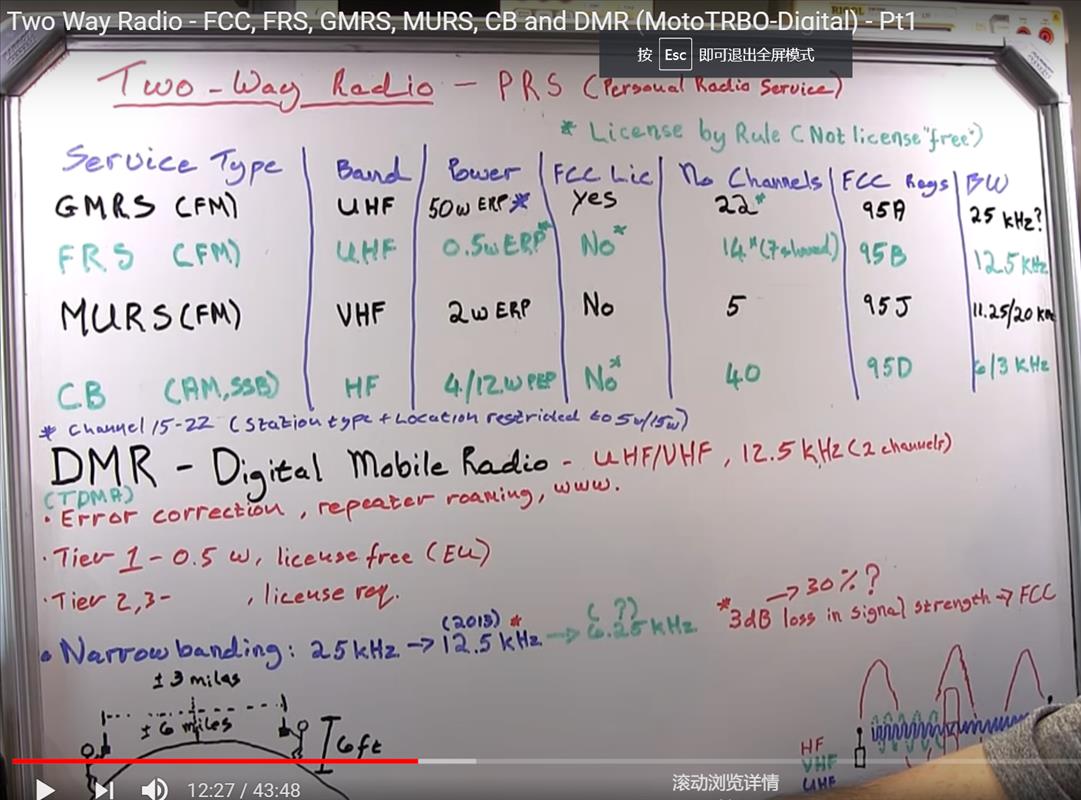 Two Way Radio - FCC, FRS, GMRS, MURS, CB and DMR (MotoTRBO-Digital) - Pt1
按 Esc 即可退出全屏模式
Two-Way Radio - PRS (Personal Radio Service)
* License by Rule (Not license "free")
Service Type Band Power FCC Lic No Channels FCC Regs BW
GMRS (FM) UHF 50w ERP* Yes 22* 95A 25 kHz?
FRS (FM) UHF 0.5w ERP* No* 14*(7 shared) 95B 12.5 kHz
MURS (FM) VHF 2w ERP No 5 95J 11.25/20 kHz
CB (AM, SSB) HF 4/12w PEP No* 40 95D 6/3 kHz
* Channel 15-22 (Station type + Location restricted to 5w/15w)
DMR - Digital Mobile Radio - UHF/VHF, 12.5 kHz (2 channels)
(TDMA)
• Error correction, repeater roaming, www.
• Tier 1 - 0.5 w, license free (EU)
• Tier 2,3- , license req.
→ 30%?
* 3dB loss in signal strength → FCC
(2013) * (?)
• Narrow banding: 25 kHz → 12.5 kHz → 6.25 kHz
± 3 miles
± 6 miles
6ft
HF
VHF
UHF
12:27 / 43:48
滚动浏览详情